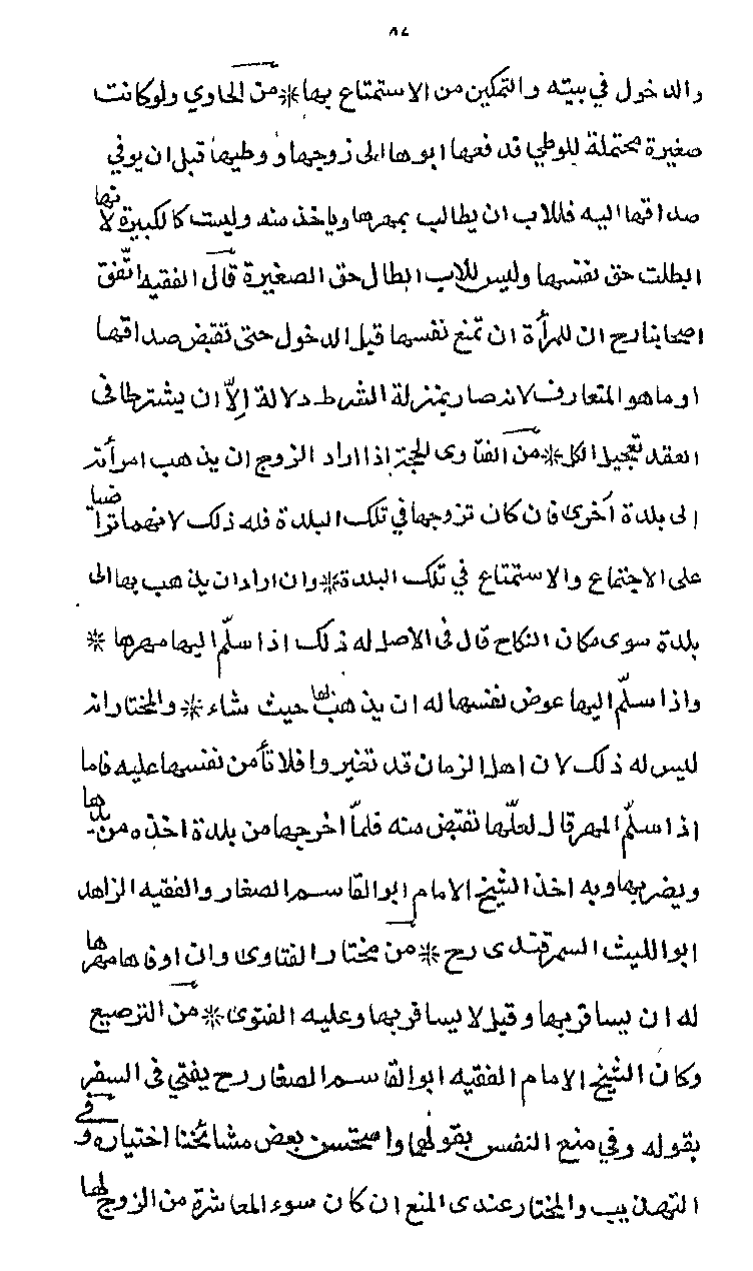 ٨٧
والدخول في بيته والتمكين من الاستمتاع بها * من الحاوي ولوكانت
صغيرة محتملة للوطي قد فعها ابوها الى زوجها ووطيها قبل ان يوفي
صداقها اليه فللاب ان يطالب بمهرها وياخذ منه وليست كالكبيرة لانها
ابطلت حق نفسها وليس للاب ابطال حق الصغيرة قال الفقيه اتّفق
اصحابنا رح ان للمرأة ان تمنع نفسها قبل الدخول حتى تقبض صداقها
او ما هو المتعارف لانه صار بمنزلة الشرط دلالة الّا ان يشترطا فى
العقد تعجيل الكل * من الفتاوى الحجة اذا اراد الزوج ان يذهب امرأته
الى بلدة اخرى فان كان تزوجها في تلك البلدة فله ذلك لانهما تراضيا
على الاجتماع والاستمتاع في تلك البلدة * وان اراد ان يذهب بها الى
بلدة سوى مكان النكاح قال فى الاصل له ذلك اذا سلّم اليها مهرها *
واذا سلّم اليها عوض نفسها له ان يذهب بها حيث شاء * والمختار انه
ليس له ذلك لان اهل الزمان قد تغيروا فلا تأمن نفسها عليه فاما
اذا سلّم المهر قال لعلّها تقبض منه فلمّا اخرجها من بلدة اخذه من يدها
ويضربها وبه اخذ الشيخ الامام ابو القاسم الصفار والفقيه الزاهد
ابو الليث السمرقندى رح * من مختار الفتاوى وان اوفاها مهرها
له ان يسافر بها وقيل لا يسافر بها وعليه الفتوى * من الترصيع
وكان الشيخ الامام الفقيه ابو القاسم الصفار رح يفتي فى السفر
بقوله وفي منع النفس بقولها واستحسن بعض مشائخنا اختياره وفي
التهذيب والمختار عندى المنع ان كان سوء المعاشرة من الزوج لها